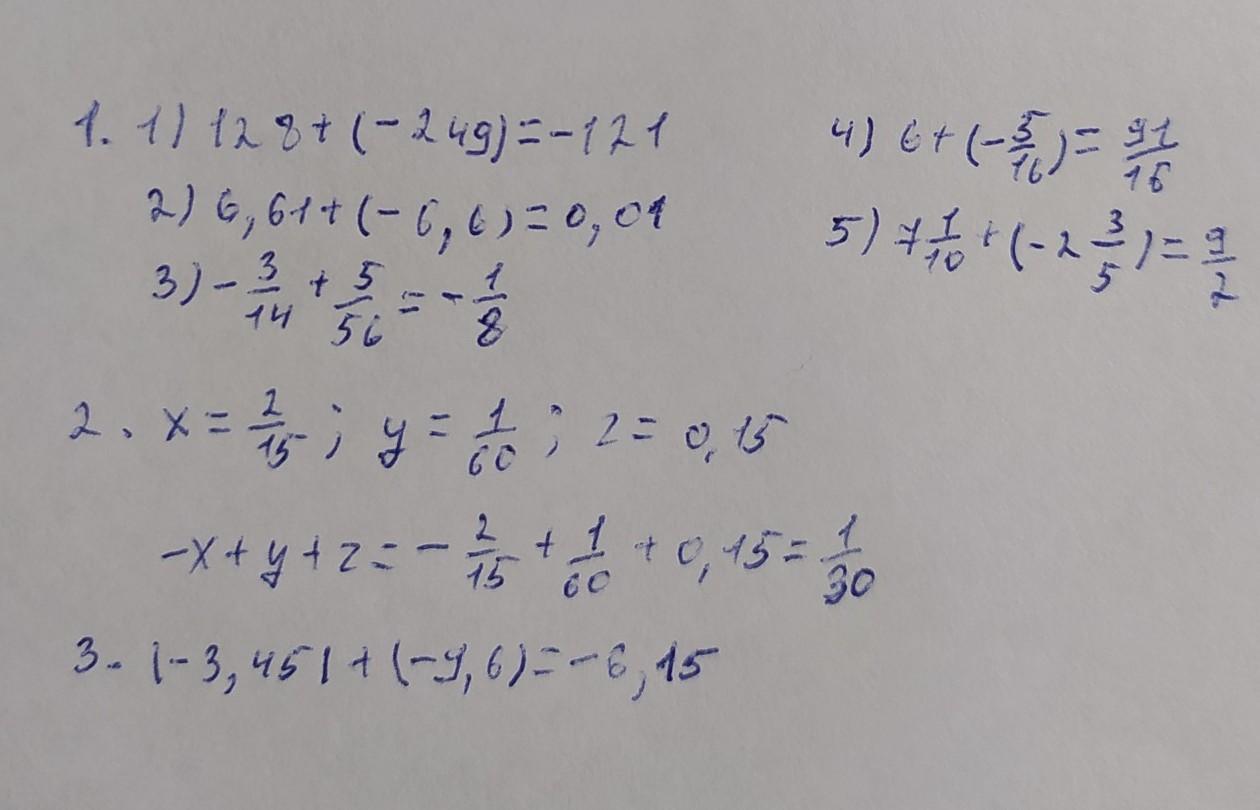 1. 1) 128 + (-249) = -121
2) 6,61 + (-6,6) = 0,01
3) - 3/14 + 5/56 = - 1/8
4) 6 + (- 5/16) = 91/16
5) 7 1/10 + (-2 3/5) = 9/2
2. x = 2/15 ; y = 1/60 ; z = 0,15
-x + y + z = - 2/15 + 1/60 + 0,15 = 1/30
3. |-3,45| + (-9,6) = -6,15